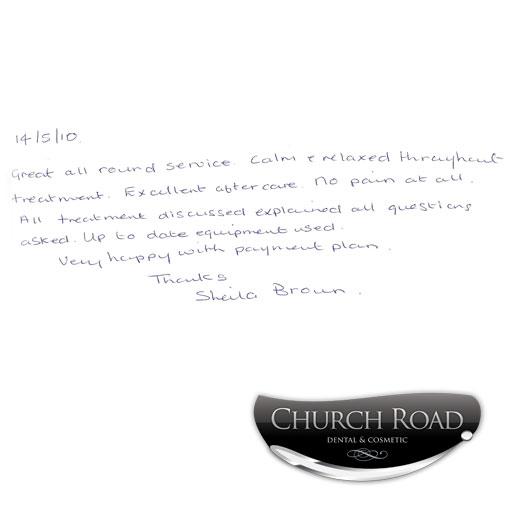 14/5/10.
Great all round service. Calm & relaxed throughout
treatment. Excellent aftercare. No pain at all.
All treatment discussed explained all questions
asked. Up to date equipment used.
Very happy with payment plan.
Thanks
Sheila Brown.
CHURCH ROAD
DENTAL & COSMETIC